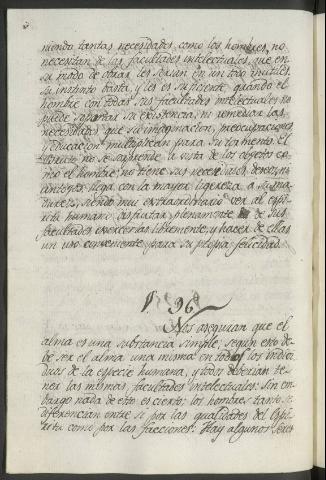 niendo tantas necesidades, como los hombres, no
necesitan de las facultades intelectuales, que en
su modo de obrar les serian en un todo inutiles.
Su instinto basta, y les es suficiente, quando el
hombre con todas sus facultades intelectuales no
puede soportar su existencia, ni remediar las
necesidades que su imaginacion, preocupaciones
y educacion multiplican para su tormento. El
bruto no se sorprende a vista de los objetos co-
mo el hombre; no tiene sus necesidades, deseos, ni
antojos; llega con la mayor ligereza a su ma-
durez, siendo muy extraordinario ver al espi-
ritu humano disfrutar plenamente de sus
facultades exercerlas libremente, y hacer de ellas
un uso conveniente para su propia felicidad.
§. 96
Nos aseguran que el
alma es una substancia simple; segun esto de-
be ser el alma una misma en todos los indivi-
duos de la especie humana, y todos deberian te-
ner las mismas facultades intelectuales. Sin em-
bargo nada de esto es cierto; los hombres tanto se
diferencian entre si por las qualidades del espi-
ritu como por las facciones. Hay algunos seres